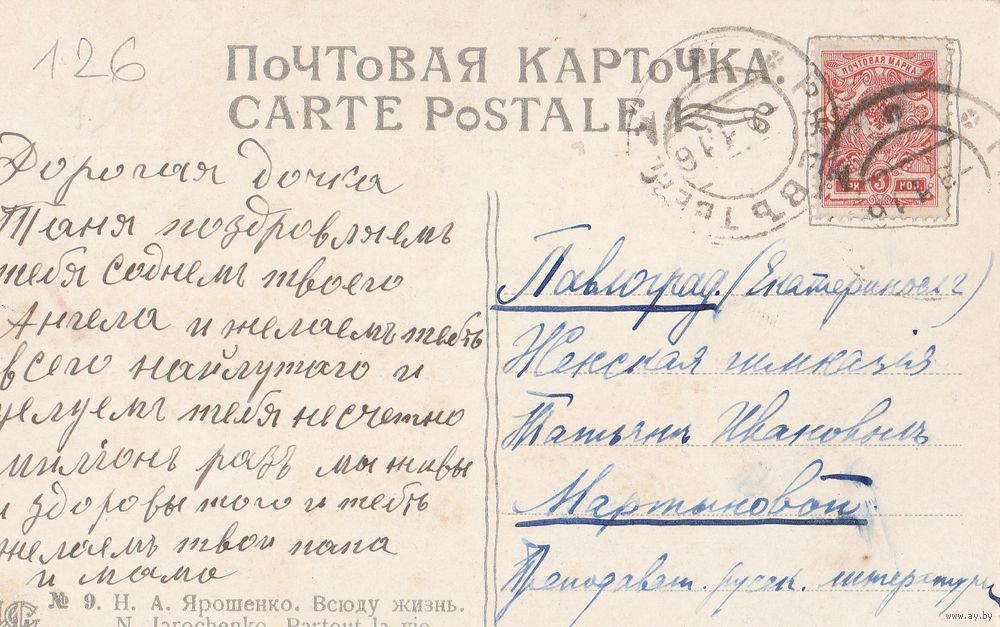 126
ПОЧТОВАЯ КАРТОЧКА.
CARTE POSTALE
ПОЧТОВАЯ МАРКА
3 КОП 3
Дорогая дочка
Таня поздровляемъ
тебя соднемъ твоего
Ангела и желаемъ тебѣ
всего найлутаго и
целуемъ тебя несчетно
милионъ разъ мы живы
и здоровы того и тебѣ
желаемъ твои папа
и мама
Павлоград. (Екатериносл. г)
Женская гимназія
Татьянѣ Ивановнѣ
Мартыновой
Преподават. русск. литературы
№ 9. Н. А. Ярошенко. Всюду жизнь.
N. Jarochenko. Partout la vie
www.ay.by